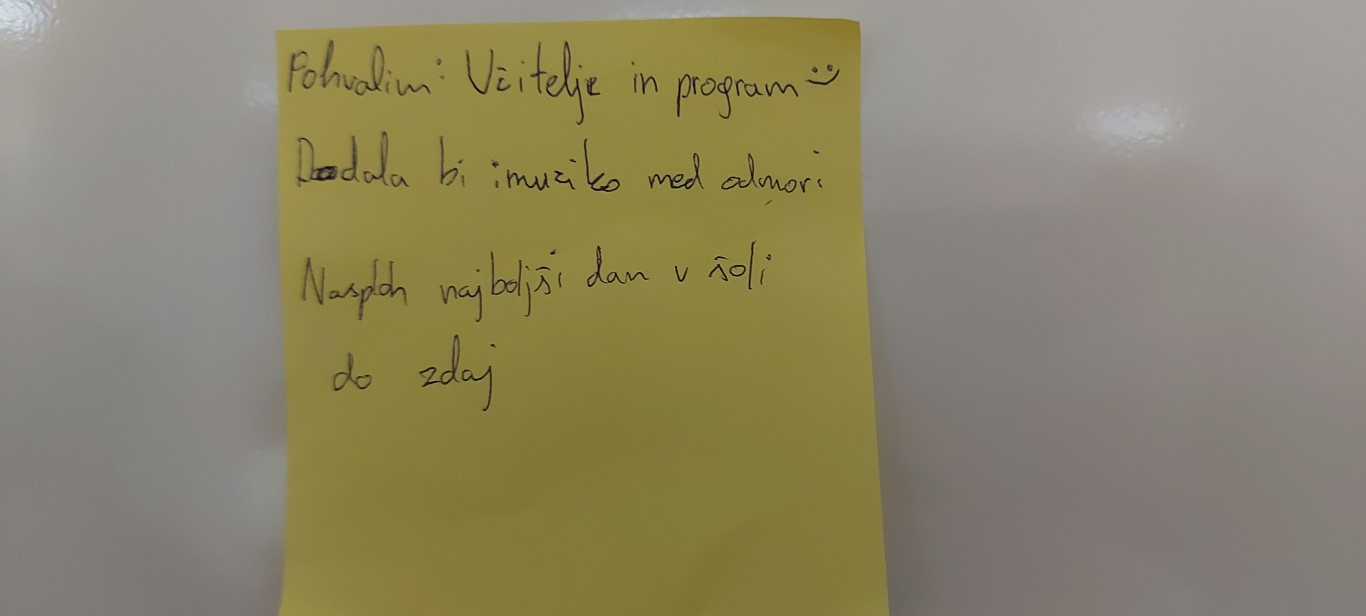 Pohvalim: Učitelje in program :)
Dodala bi : muziko med odmori
Nasploh najboljši dan v šoli
do zdaj